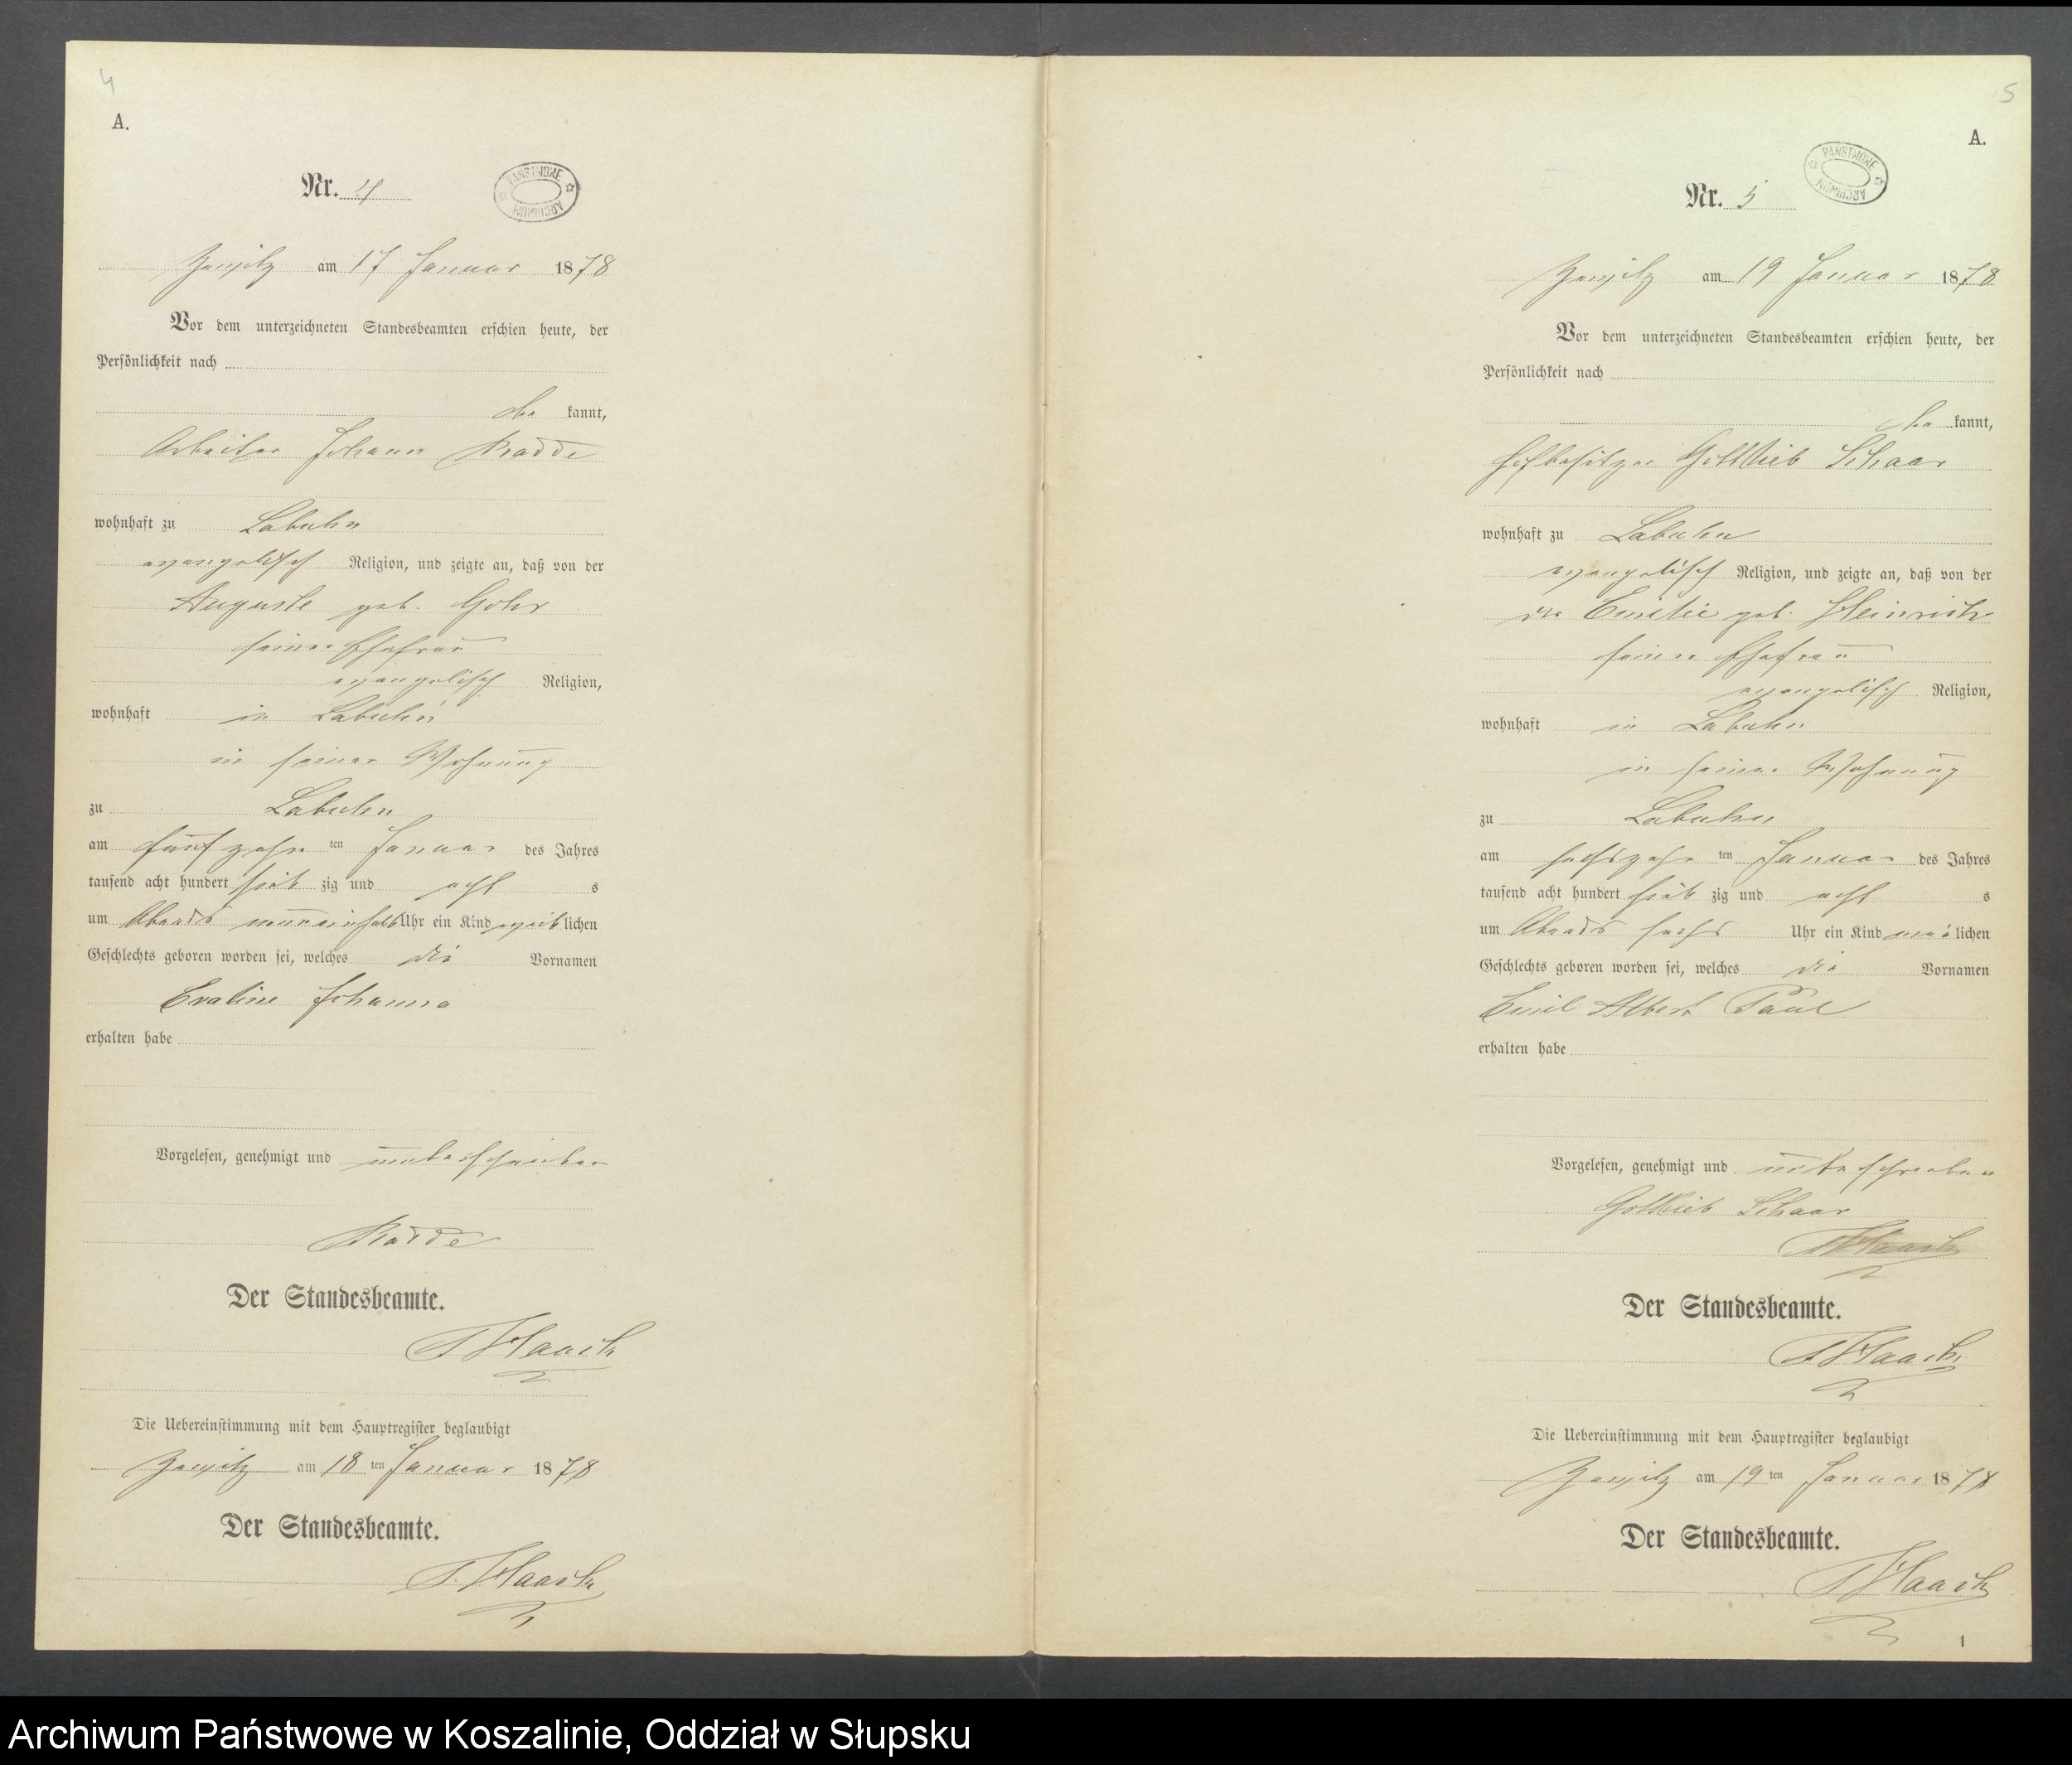 4
A.
Nr. 4
PAŃSTWOWE ARCHIWUM
Zewitz am 17 Januar 1878
Vor dem unterzeichneten Standesbeamten erschien heute, der
Persönlichkeit nach
be kannt,
Arbeiter Johann Radde
wohnhaft zu Labuhn
evangelisch Religion, und zeigte an, daß von der
Auguste geb. Gohr
seiner Ehefrau
evangelisch Religion,
wohnhaft in Labuhn
in seiner Wohnung
zu Labuhn
am fünfzehn ten Januar des Jahres
tausend acht hundert sieb zig und acht s
um Abends neuneinhalb Uhr ein Kind weib lichen
Geschlechts geboren worden sei, welches die Vornamen
Evaline Johanna
erhalten habe
Vorgelesen, genehmigt und unterschrieben
Radde
Der Standesbeamte.
Haack
Die Uebereinstimmung mit dem Hauptregister beglaubigt
Zewitz am 18 ten Januar 1878
Der Standesbeamte.
Haack
5
A.
Nr. 5
PAŃSTWOWE ARCHIWUM
Zewitz am 19 Januar 1878
Vor dem unterzeichneten Standesbeamten erschien heute, der
Persönlichkeit nach
be kannt,
Hofbesitzer Gottlieb Schaar
wohnhaft zu Labuhn
evangelisch Religion, und zeigte an, daß von der
der Emilie geb. Heinrich
seiner Ehefrau
evangelisch Religion,
wohnhaft in Labuhn
in seiner Wohnung
zu Labuhn
am sechszehn ten Januar des Jahres
tausend acht hundert sieb zig und acht s
um Abends sechs Uhr ein Kind män lichen
Geschlechts geboren worden sei, welches die Vornamen
Emil Albert Paul
erhalten habe
Vorgelesen, genehmigt und unterschrieben
Gottlieb Schaar
Haack
Der Standesbeamte.
Haack
Die Uebereinstimmung mit dem Hauptregister beglaubigt
Zewitz am 19 ten Januar 1878
Der Standesbeamte.
Haack
1
Archiwum Państwowe w Koszalinie, Oddział w Słupsku